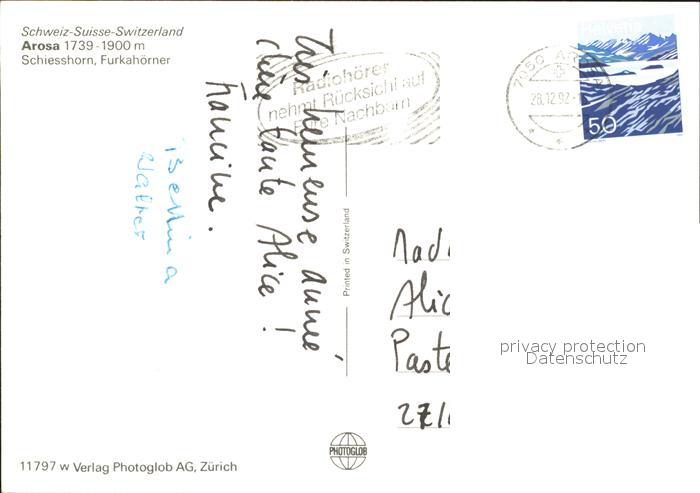 Schweiz-Suisse-Switzerland
Arosa 1739-1900 m
Schiesshorn, Furkahörner
Radiohörer
nehmt Rücksicht auf
Eure Nachbarn
7050
28.12.92
Helvetia
50
Très heureuse année,
chère tante Alice !
Francine.
Bettina
Walther
Printed in Switzerland
Mad
Alic
Paste
27/
privacy protection
Datenschutz
PHOTOGLOB
11797 w Verlag Photoglob AG, Zürich